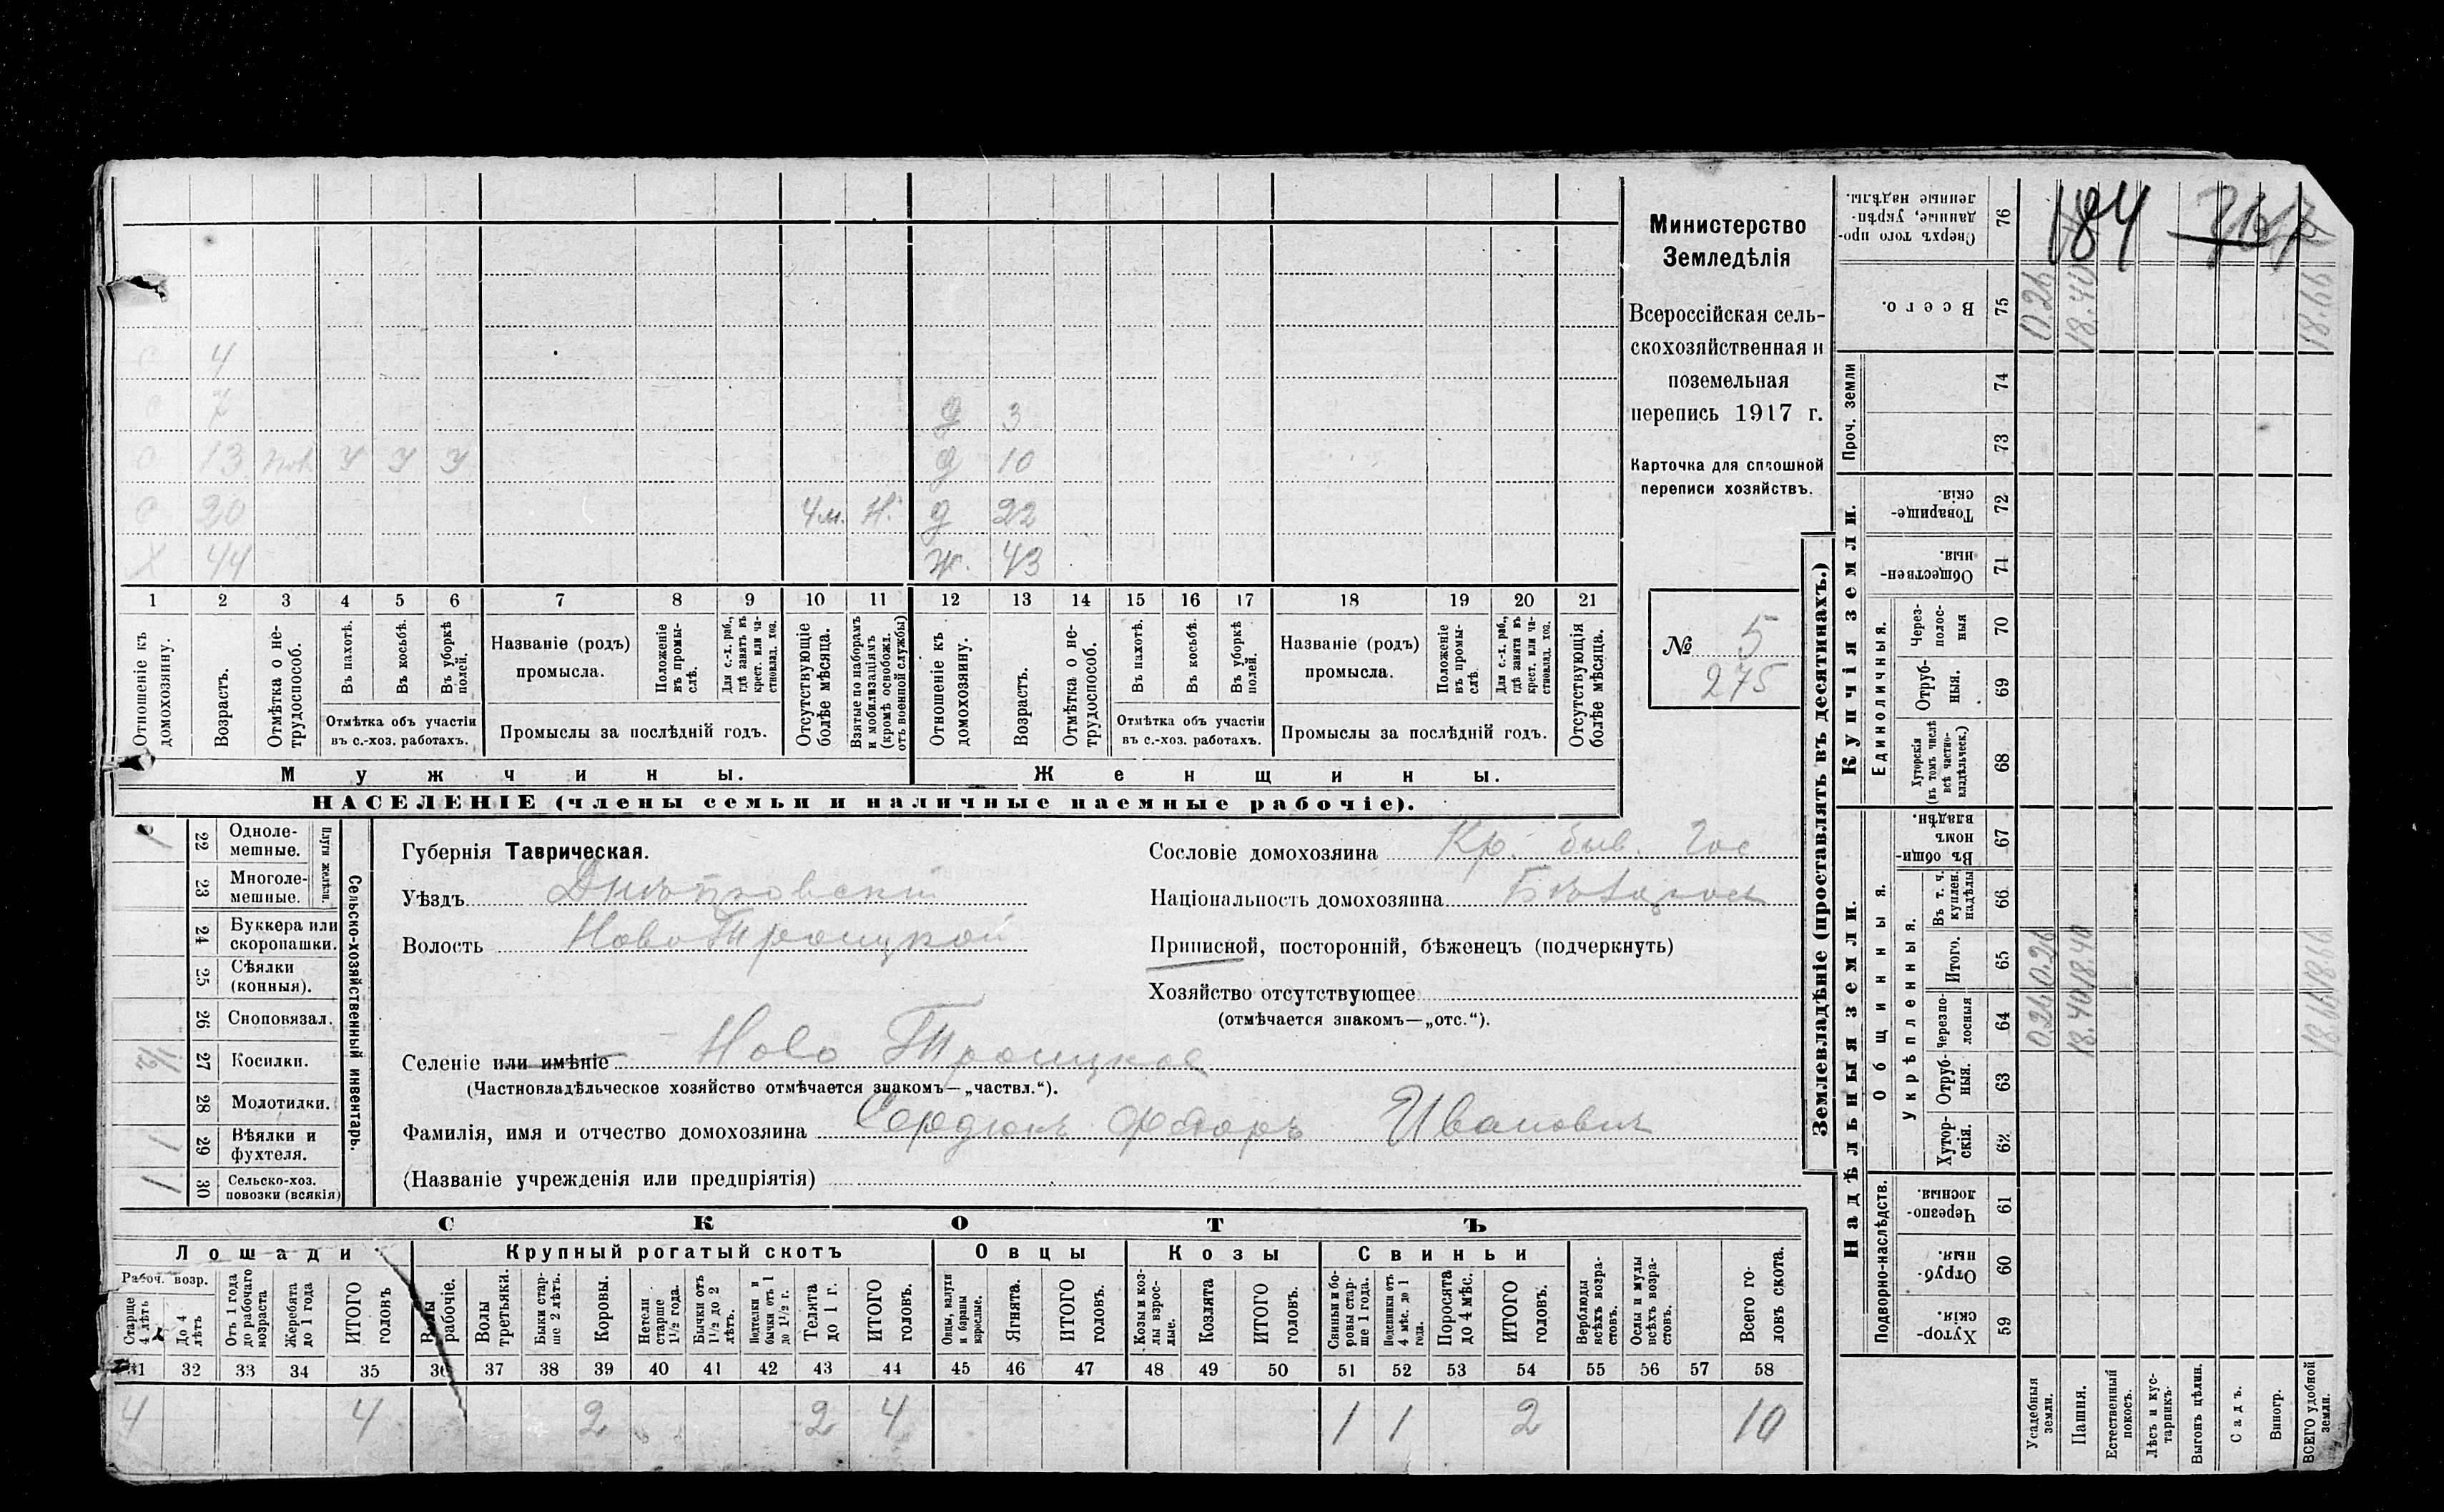 184
Министерство
Земледѣлія
Всероссійская сель-
скохозяйственная и
поземельная
перепись 1917 г.
Карточка для сплошной
переписи хозяйствъ.
№ 5
275
с 4
с 7 д 3
с 13 У У У д 10
с 20 4 м. Н. д 22
Х 44 ж. 43
1 2 3 4 5 6 7 8 9 10 11 12 13 14 15 16 17 18 19 20 21
Отношеніе къ домохозяину.
Возрастъ.
Отмѣтка о не-трудоспособ.
Въ пахотѣ.
Въ косьбѣ.
Въ уборкѣ полей.
Отмѣтка объ участіи
въ с.-хоз. работахъ.
Названіе (родъ)
промысла.
Положеніе въ промы-слѣ.
Для с.-х. раб., гдѣ занятъ въ крест. или ча-стновлад. хоз.
Промыслы за послѣдній годъ.
Отсутствующіе болѣе мѣсяца.
Взятые по наборамъ и мобилизаціямъ (кромѣ освобожд. отъ военной службы)
Отношеніе къ домохозяину.
Возрастъ.
Отмѣтка о не-трудоспособ.
Въ пахотѣ.
Въ косьбѣ.
Въ уборкѣ полей.
Отмѣтка объ участіи
въ с.-хоз. работахъ.
Названіе (родъ)
промысла.
Положеніе въ промы-слѣ.
Для с.-х. раб., гдѣ занята въ крест. или ча-стновлад. хоз.
Промыслы за послѣдній годъ.
Отсутствующія болѣе мѣсяца.
Мужчины. Женщины.
НАСЕЛЕНІЕ (члены семьи и наличные наемные рабочіе).
Сельско-хозяйственный инвентарь.
Плуги желѣзн.
1 22 Одноле-мешные.
23 Многоле-мешные.
24 Буккера или скоропашки.
25 Сѣялки (конныя).
26 Сноповязал.
1/2 27 Косилки.
28 Молотилки.
1 29 Вѣялки и фухтеля.
1 30 Сельско-хоз. повозки (всякія)
Губернія Таврическая.
Уѣздъ Днѣпровскій
Волость Ново Троицкой
Сословіе домохозяина Кр. быв. Гос
Національность домохозяина
Приписной, посторонній, бѣженецъ (подчеркнуть)
Хозяйство отсутствующее
(отмѣчается знакомъ—„отс.“).
Селеніе или имѣніе Ново Троицкое
(Частновладѣльческое хозяйство отмѣчается знакомъ—„частвл.“).
Фамилія, имя и отчество домохозяина Сердюкъ Фёдоръ Ивановичъ
(Названіе учрежденія или предпріятія)
СКОТЪ
Лошади Крупный рогатый скотъ Овцы Козы Свиньи
Рабоч. возр.
Старше 4 лѣтъ
До 4 лѣтъ
Отъ 1 года до рабочаго возраста
Жеребята до 1 года
ИТОГО головъ
Волы рабочіе.
Волы третьяки.
Быки стар-ше 2 лѣтъ.
Коровы.
Нетели старше 1½ года.
Бычки отъ 1½ до 2 лѣтъ.
Подтелки и бычки отъ 1 до 1½ г.
Телята до 1 г.
ИТОГО головъ.
Овцы, валухи и бараны взрослые.
Ягнята.
ИТОГО головъ.
Козы и коз-лы взрос-лые.
Козлята
ИТОГО головъ.
Свиньи и бо-ровы стар-ше 1 года.
Подсвинки отъ 4 мѣс. до 1 года.
Поросята до 4 мѣс.
ИТОГО головъ.
Верблюды всѣхъ возра-стовъ.
Ослы и мулы всѣхъ возра-стовъ.
Всего го-ловъ скота.
31 32 33 34 35 36 37 38 39 40 41 42 43 44 45 46 47 48 49 50 51 52 53 54 55 56 57 58
4 4 2 2 4 1 1 2 10
Землевладѣніе (проставлять въ десятинахъ.)
Купчія земли.
Надѣльныя земли.
Сверхъ того про-данные, укрѣп-ленные надѣлы. 76
Всего. 75 0.26 18.40 18.66
Проч. земли 74
73
Товарище-скія. 72
Обществен-ныя. 71
Единоличныя.
Через-полос-ныя 70
Отруб-ныя. 69
Хуторскія (въ томъ числѣ всѣ частно-владѣльческ.) 68
Общинныя.
Въ общи-номъ владѣн. 67
Укрѣпленныя.
Въ т. ч. куплен. надѣлы 66
Итого. 65 0.26 18.40 18.66
Черезпо-лосныя 64 0.26 18.40 18.66
Отруб-ныя. 63
Хутор-скія. 62
Подворно-наслѣдств.
Черезпо-лосныя. 61
Отруб-ныя. 60
Хутор-скія. 59
Усадебныя земли.
Пашня.
Естественный покосъ.
Лѣсъ и кус-тарникъ.
Выгонъ цѣлин.
Садъ.
Виногр.
ВСЕГО удобной земли.